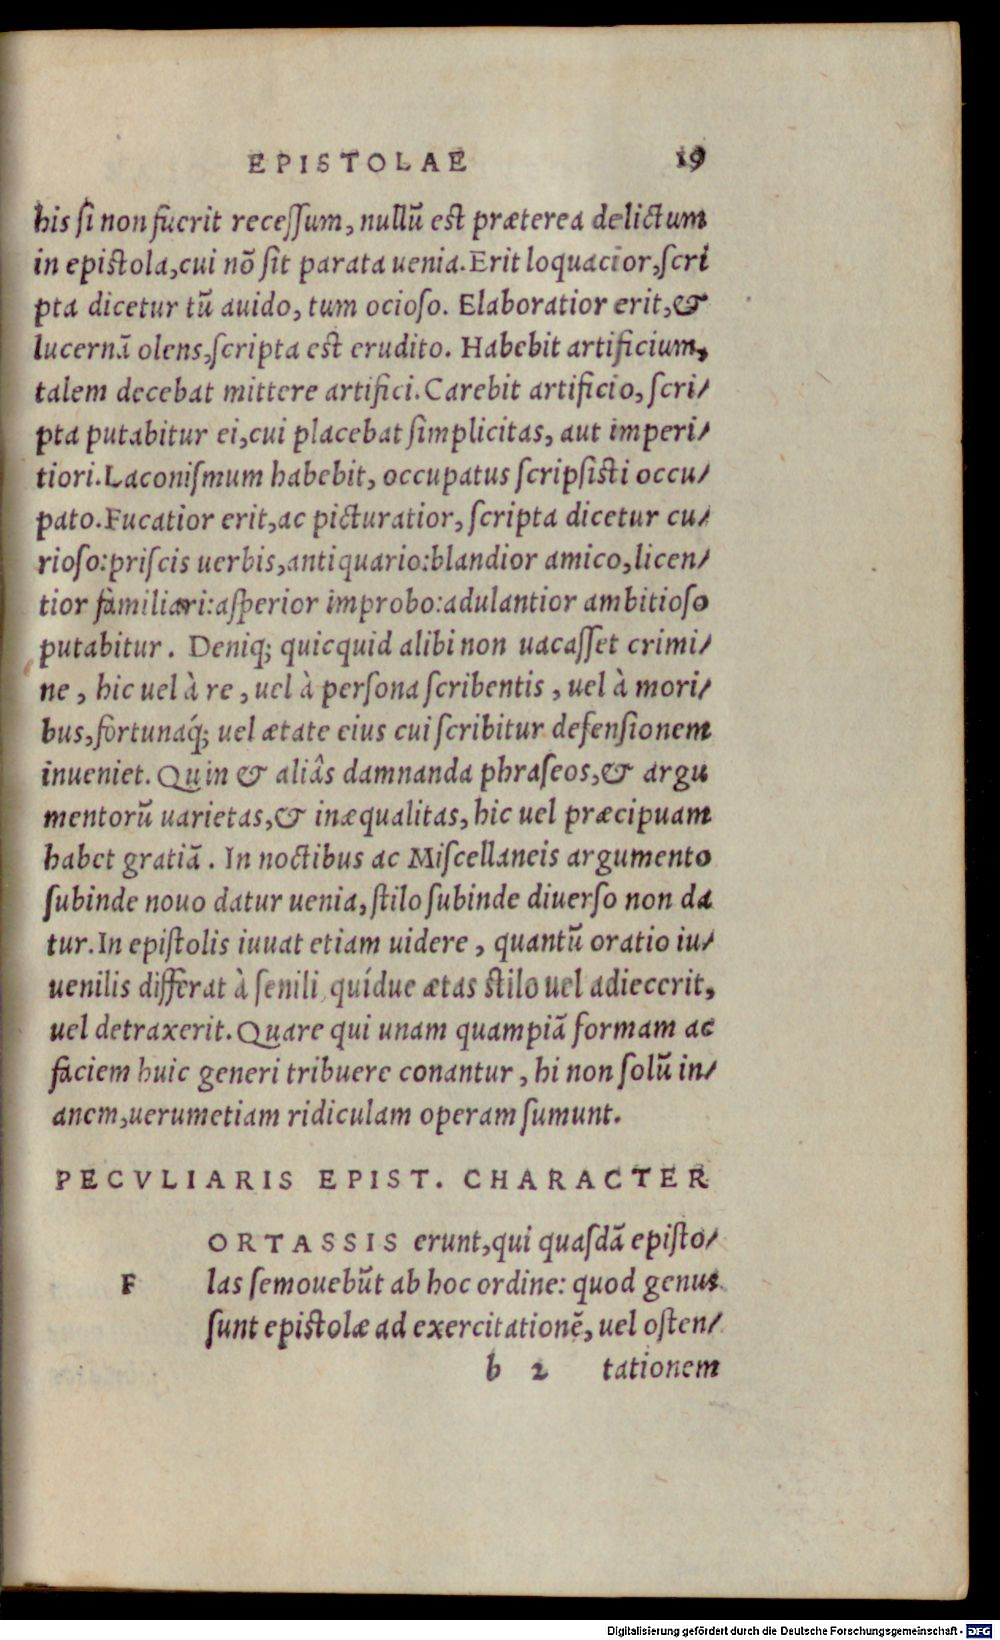 EPISTOLAE 19
his si non fuerit recessum, nullũ est præterea delictum
in epistola,cui nõ sit parata uenia.Erit loquacior,scri
pta dicetur tũ auido, tum ocioso. Elaboratior erit,&
lucernã olens,scripta est erudito. Habebit artificium,
talem decebat mittere artifici.Carebit artificio, scri/
pta putabitur ei,cui placebat simplicitas, aut imperi/
tiori.Laconismum habebit, occupatus scripsisti occu/
pato.Fucatior erit,ac picturatior, scripta dicetur cu/
rioso:priscis uerbis,antiquario:blandior amico,licen/
tior familiari:asperior improbo:adulantior ambitioso
putabitur. Deniq; quicquid alibi non uacasset crimi/
ne, hic uel à re, uel à persona scribentis, uel à mori/
bus,fortunáq; uel ætate eius cui scribitur defensionem
inueniet. Quin & aliâs damnanda phraseos,& argu
mentorũ uarietas,& inæqualitas, hic uel præcipuam
habet gratiã. In noctibus ac Miscellaneis argumento
subinde nouo datur uenia, stilo subinde diuerso non da
tur.In epistolis iuuat etiam uidere, quantũ oratio iu/
uenilis differat à senili, quídue ætas stilo uel adiecerit,
uel detraxerit. Quare qui unam quampiã formam ac
faciem huic generi tribuere conantur, hi non solũ in/
anem,uerumetiam ridiculam operam sumunt.
PECVLIARIS EPIST. CHARACTER
ORTASSIS erunt,qui quasdã episto/
F las semouebũt ab hoc ordine: quod genus
sunt epistolæ ad exercitationẽ, uel osten/
b 2 tationem
Digitalisierung gefördert durch die Deutsche Forschungsgemeinschaft - DFG